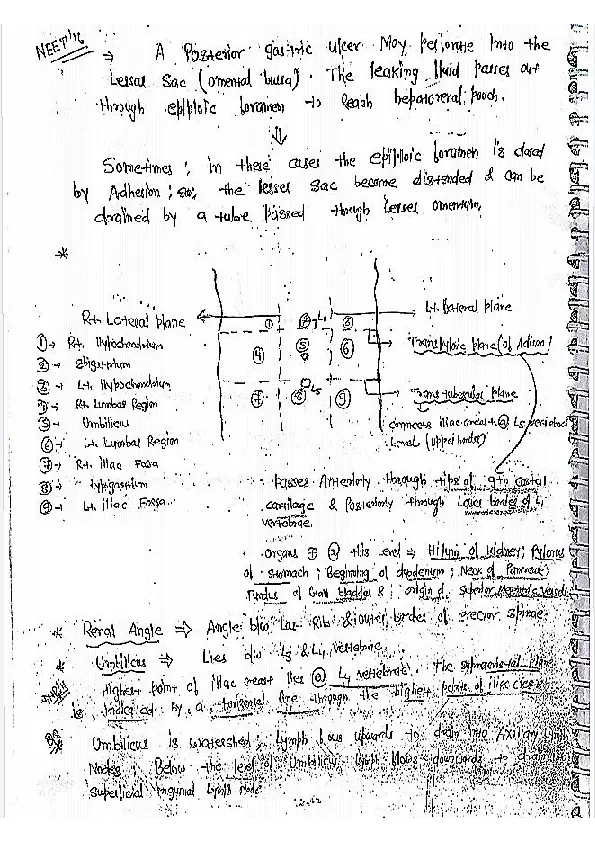 NEET'16
⇒ A Posterior gastric ulcer May perforate into the
Lesser Sac (omental bursa). The leaking fluid passes out
through epiploic foramen to Reach hepatorenal pouch.
⇓
Sometimes; in these cases the epiploic foramen is closed
by Adhesion; so, the lesser sac become distended & can be
drained by a tube passed through lesser omentum.
*
Rt. Lateral plane
Lt. lateral plane
① → Rt. Hypochondrium
② → Epigastrium
③ → Lt. Hypochondrium
Rt. Lumbar Region
Umbilicus
⑥ → Lt. Lumbar Region
⑦ → Rt. Iliac Fossa
⑧ → Hypogastrium
⑨ → Lt. Iliac Fossa
① ② L1 ③
④ ⑤ ⑥
⑦ ⑧ L5 ⑨
Transpyloric plane (of Adison)
Trans tubercular plane
iliac crest L5 vertebral
Level (upper border)
Passes Anteriorly through tips of 9th costal
cartilage & Posteriorly through lower border of L1
vertebrae.
Organs this level ⇒ Hilum of kidney; Pylorus
of stomach; Beginning of duodenum; Neck of Pancreas
Fundus of Gall bladder &; origin of superior mesenteric vessels
* Renal Angle ⇒ Angle b/w Last Rib & outer border of erector spinae.
* Umbilicus ⇒ Lies b/w L3 & L4 vertebrae.
Highest point of iliac crest lies @ L4 vertebrae. The
is indicated by a horizontal line through the highest points of iliac crest
Umbilicus is watershed; Lymph flows upwards to drain into Axillary Lymph
Nodes; Below the level of Umbilicus lymph flows downwards to drain
superficial inguinal Lymph Node